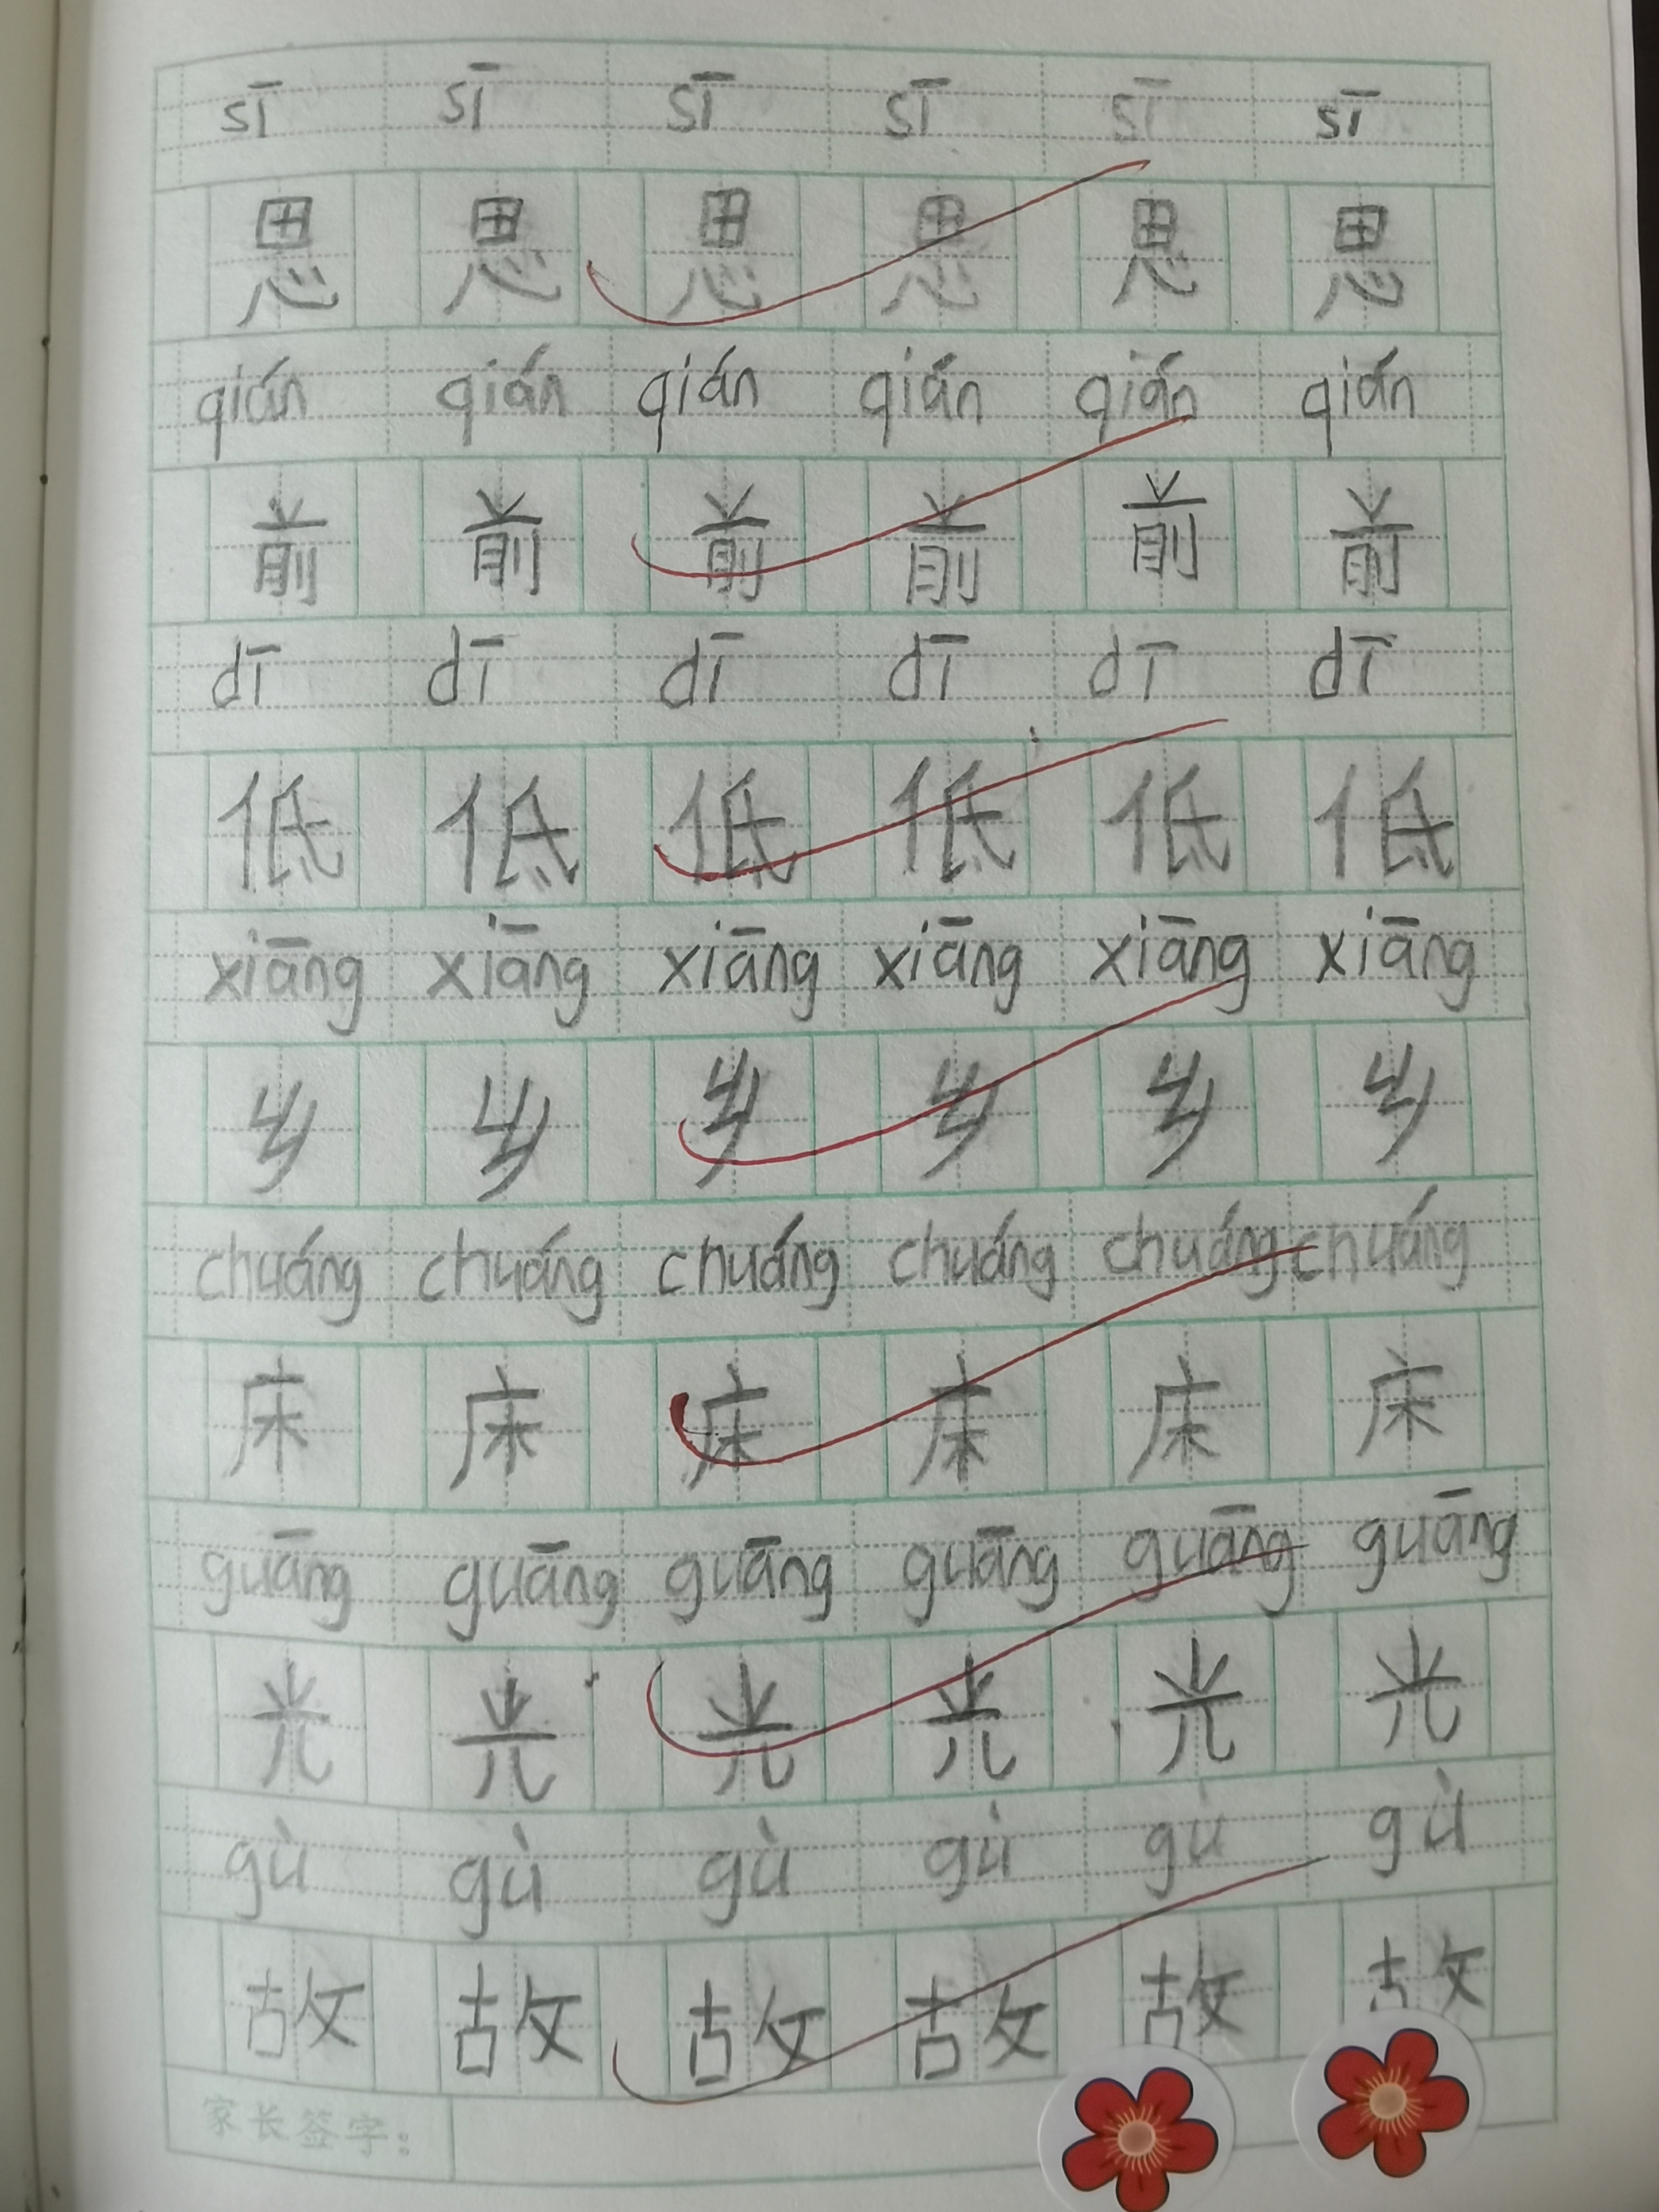 sī sī sī sī sī sī
思 思 思 思 思 思
qián qián qián qián qián qián
前 前 前 前 前 前
dī dī dī dī dī dī
低 低 低 低 低 低
xiāng xiāng xiāng xiāng xiāng xiāng
乡 乡 乡 乡 乡 乡
chuáng chuáng chuáng chuáng chuáng chuáng
床 床 床 床 床 床
guāng guāng guāng guāng guāng guāng
光 光 光 光 光 光
gù gù gù gù gù gù
故 故 故 故 故 故
家长签字：